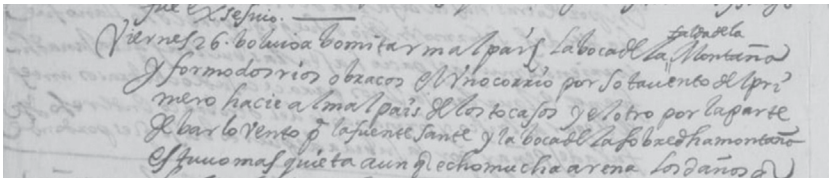 fue exsesiuo.
Viernes 26. boluio a bomitar malpais la boca de la falda de la Montaña
y formo dos rios o bracos el uno corrio por sotauento del pri
mero hacia el malpais de los tocasos y el otro por la parte
de barlovento pª la fuente sante y la boca de la sobredha montaña
estuuo mas quieta aunq echo mucha arena los daños q